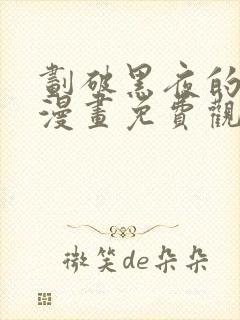 劃破黑夜的
漫畫免費觀
微笑de朵朵